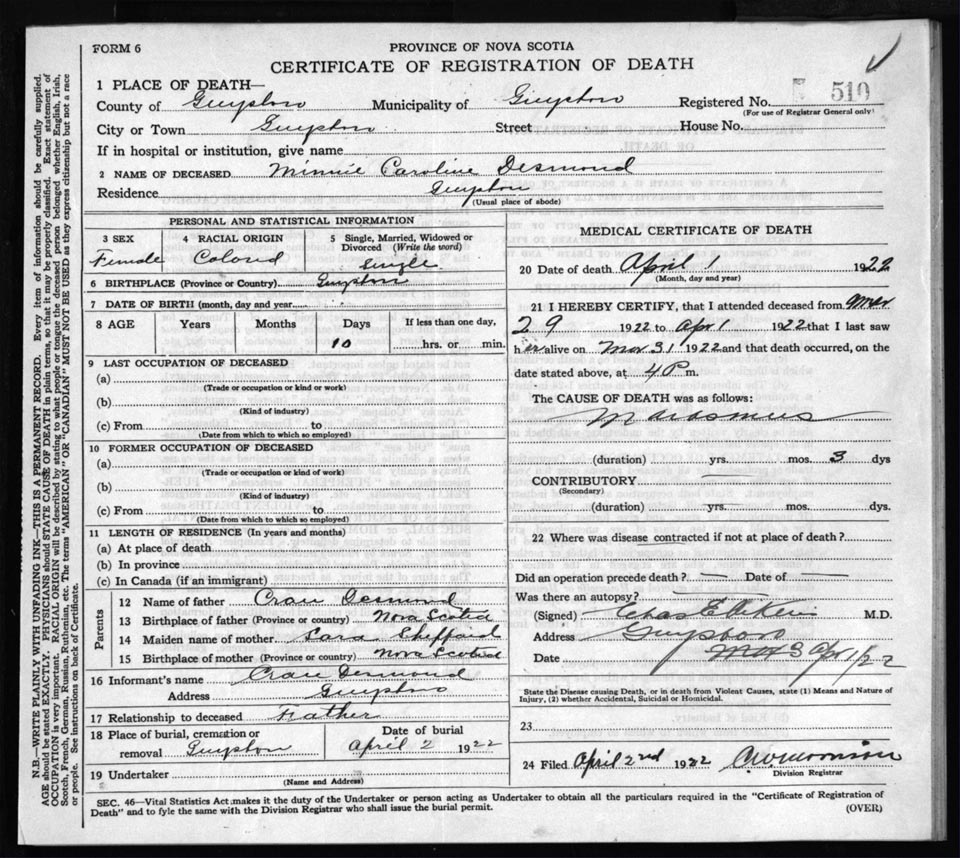 FORM 6
PROVINCE OF NOVA SCOTIA
CERTIFICATE OF REGISTRATION OF DEATH
1 PLACE OF DEATH—
County of Guysboro Municipality of Guysboro Registered No. 510
(For use of Registrar General only)
City or Town Guysboro Street House No.
If in hospital or institution, give name
2 NAME OF DECEASED Minnie Caroline Desmond
Residence Guysboro
(Usual place of abode)
PERSONAL AND STATISTICAL INFORMATION
3 SEX 4 RACIAL ORIGIN 5 Single, Married, Widowed or Divorced (Write the word)
Female Colored Single
6 BIRTHPLACE (Province or Country) Guysboro
7 DATE OF BIRTH (month, day and year)
8 AGE Years Months Days If less than one day,
10 hrs. or min.
9 LAST OCCUPATION OF DECEASED
(a)
(Trade or occupation or kind or work)
(b)
(Kind of industry)
(c) From to
(Date from which to which so employed)
10 FORMER OCCUPATION OF DECEASED
(a)
(Trade or occupation or kind of work)
(b)
(Kind of industry)
(c) From to
(Date from which to which so employed)
11 LENGTH OF RESIDENCE (In years and months)
(a) At place of death
(b) In province
(c) In Canada (if an immigrant)
Parents
12 Name of father Desmond
13 Birthplace of father (Province or country) Nova Scotia
14 Maiden name of mother Sara Sheppard
15 Birthplace of mother (Province or country) Nova Scotia
16 Informant's name Desmond
Address Guysboro
17 Relationship to deceased Father
18 Place of burial, cremation or removal Guysboro
Date of burial
April 2 1922
19 Undertaker
(Name and Address)
MEDICAL CERTIFICATE OF DEATH
20 Date of death April 1 1922
(Month, day and year)
21 I HEREBY CERTIFY, that I attended deceased from Mar
29 1922 to Apr 1 1922 that I last saw
her alive on Mar 31 1922 and that death occurred, on the
date stated above, at 4 P m.
The CAUSE OF DEATH was as follows:
Marasmus
(duration) yrs. mos. 3 dys
CONTRIBUTORY
(Secondary)
(duration) yrs. mos. dys.
22 Where was disease contracted if not at place of death?
Did an operation precede death? — Date of —
Was there an autopsy? —
(Signed) Chas E M.D.
Address Guysboro
Date Apr 1/22
State the Disease causing Death, or in death from Violent Causes, state (1) Means and Nature of
Injury, (2) whether Accidental, Suicidal or Homicidal.
23
24 Filed April 2nd 1922
Division Registrar
SEC. 46—Vital Statistics Act makes it the duty of the Undertaker or person acting as Undertaker to obtain all the particulars required in the "Certificate of Registration of
Death" and to fyle the same with the Division Registrar who shall issue the burial permit.
(OVER)
N.B.—WRITE PLAINLY WITH UNFADING INK—THIS IS A PERMANENT RECORD. Every item of information should be carefully supplied.
AGE should be stated EXACTLY. PHYSICIANS should STATE CAUSE OF DEATH in plain terms, so that it may be properly classified. Exact statement of
OCCUPATION is very important. RACIAL ORIGIN will be described by stating to what people or tongue the deceased person belonged whether English, Irish,
Scotch, French, German, Russian, Ruthenian, etc. The terms "AMERICAN" OR "CANADIAN" MUST NOT BE USED as they express citizenship but not a race
or people. See instructions on back of Certificate.